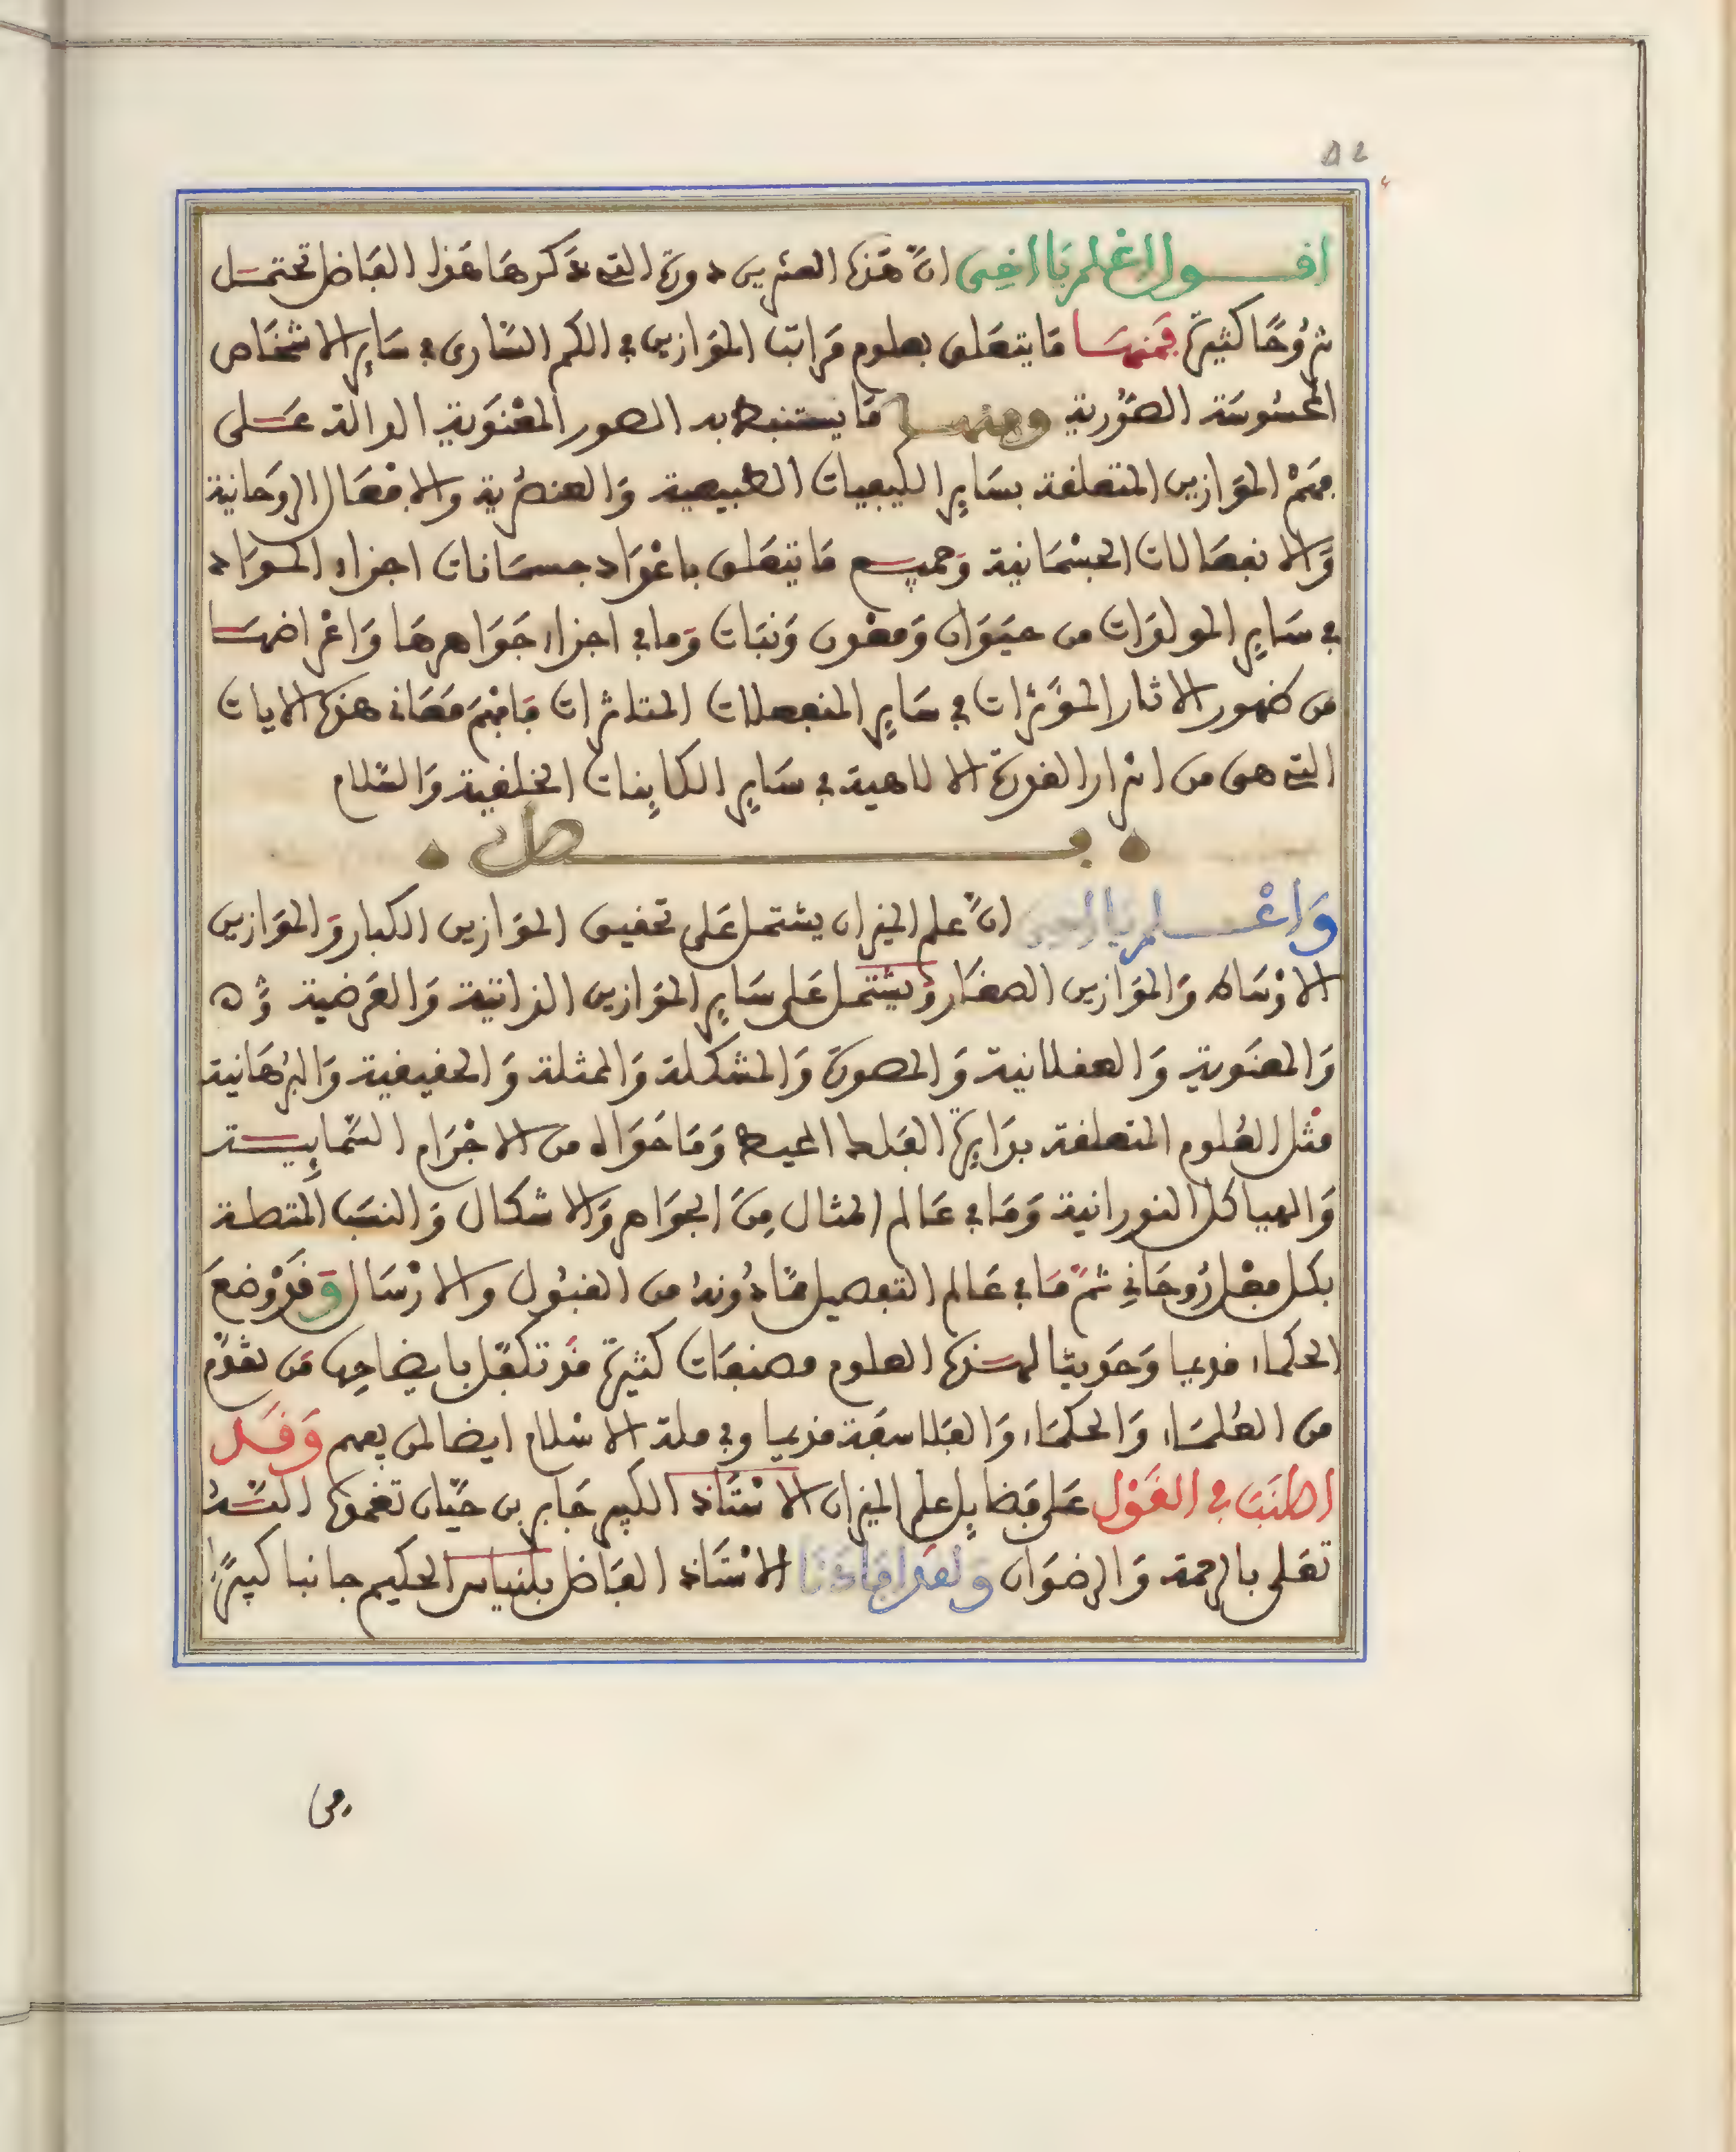 اقول اعلم يا اخي انّ هذه العشرين دورة التي ذكرها هذا الفاضل تحتمل
شروحًا كثيرة فمنها ما يتعلق بعلوم مراتب الموازين في الكم السّاري في ساير الاشخاص
المحسوسة الصّورية ومنها ما يستنبط به الصور المعْنوية الدالة على
فهمْ الموازين المتعلقة بساير الكيفيات الطبيعية والعنصرية والافعال الروحانية
والانفعالات الجسْمانية وجميع ما يتعلق باعْواد جسمانات اجزاء المواد
في ساير المولدات من حيوان ومعدن ونبات وما في اجزاء جواهرها واعْراضها
من ظهور الاثار المؤثرات في ساير المنفعلات المتاثرات فافهم معاني هذه الايات
التي هي من اسرار القدرة الالاهية في ساير الكاينات الخلقية والسّلام
فصل
واعْلم يا اخي انّ علم الميزان يشتمل على تحقيق الموازين الكبار والموازين
الاوْساط والموازين الصغار ويشتمل على ساير الموازين الذاتية والعرضية
والمعنوية والعقلانية والمصورة والمشكلة والممثلة والحقيقية والبرْهانية
مثل العُلوم المتعلقة بدايرة الفلك المحيط وما حواه من الاجْرام السّمايية
والهياكل النورانية وما في عالم المثال من الجواهر والاشكال والنسب المتصلة
بكل فعْل رُوحاني ثمّ ما في عالم التفصيل ممّا دُونهُ من القبُول والارْسال وقد وْضعَ
الحكماء قديما وحديثا لهذه العلوم مصنفات كثيرة قد تكفّل بايضاحها من تقدّم
من العُلماء والحكماء والفلاسفة قديما وفي ملة الاسْلام ايضا لمن يفهم وقد
اطْنبَ في القوْل على فضايل علم الميزان الاسْتاذ الكبير جابر بن حيّان تغمده اللّه
تعلى بالرحمة والرضوان ولقد افادنا الاسْتاذ الفاضل بلنياس الحكيم جانبا كبيرًا
من